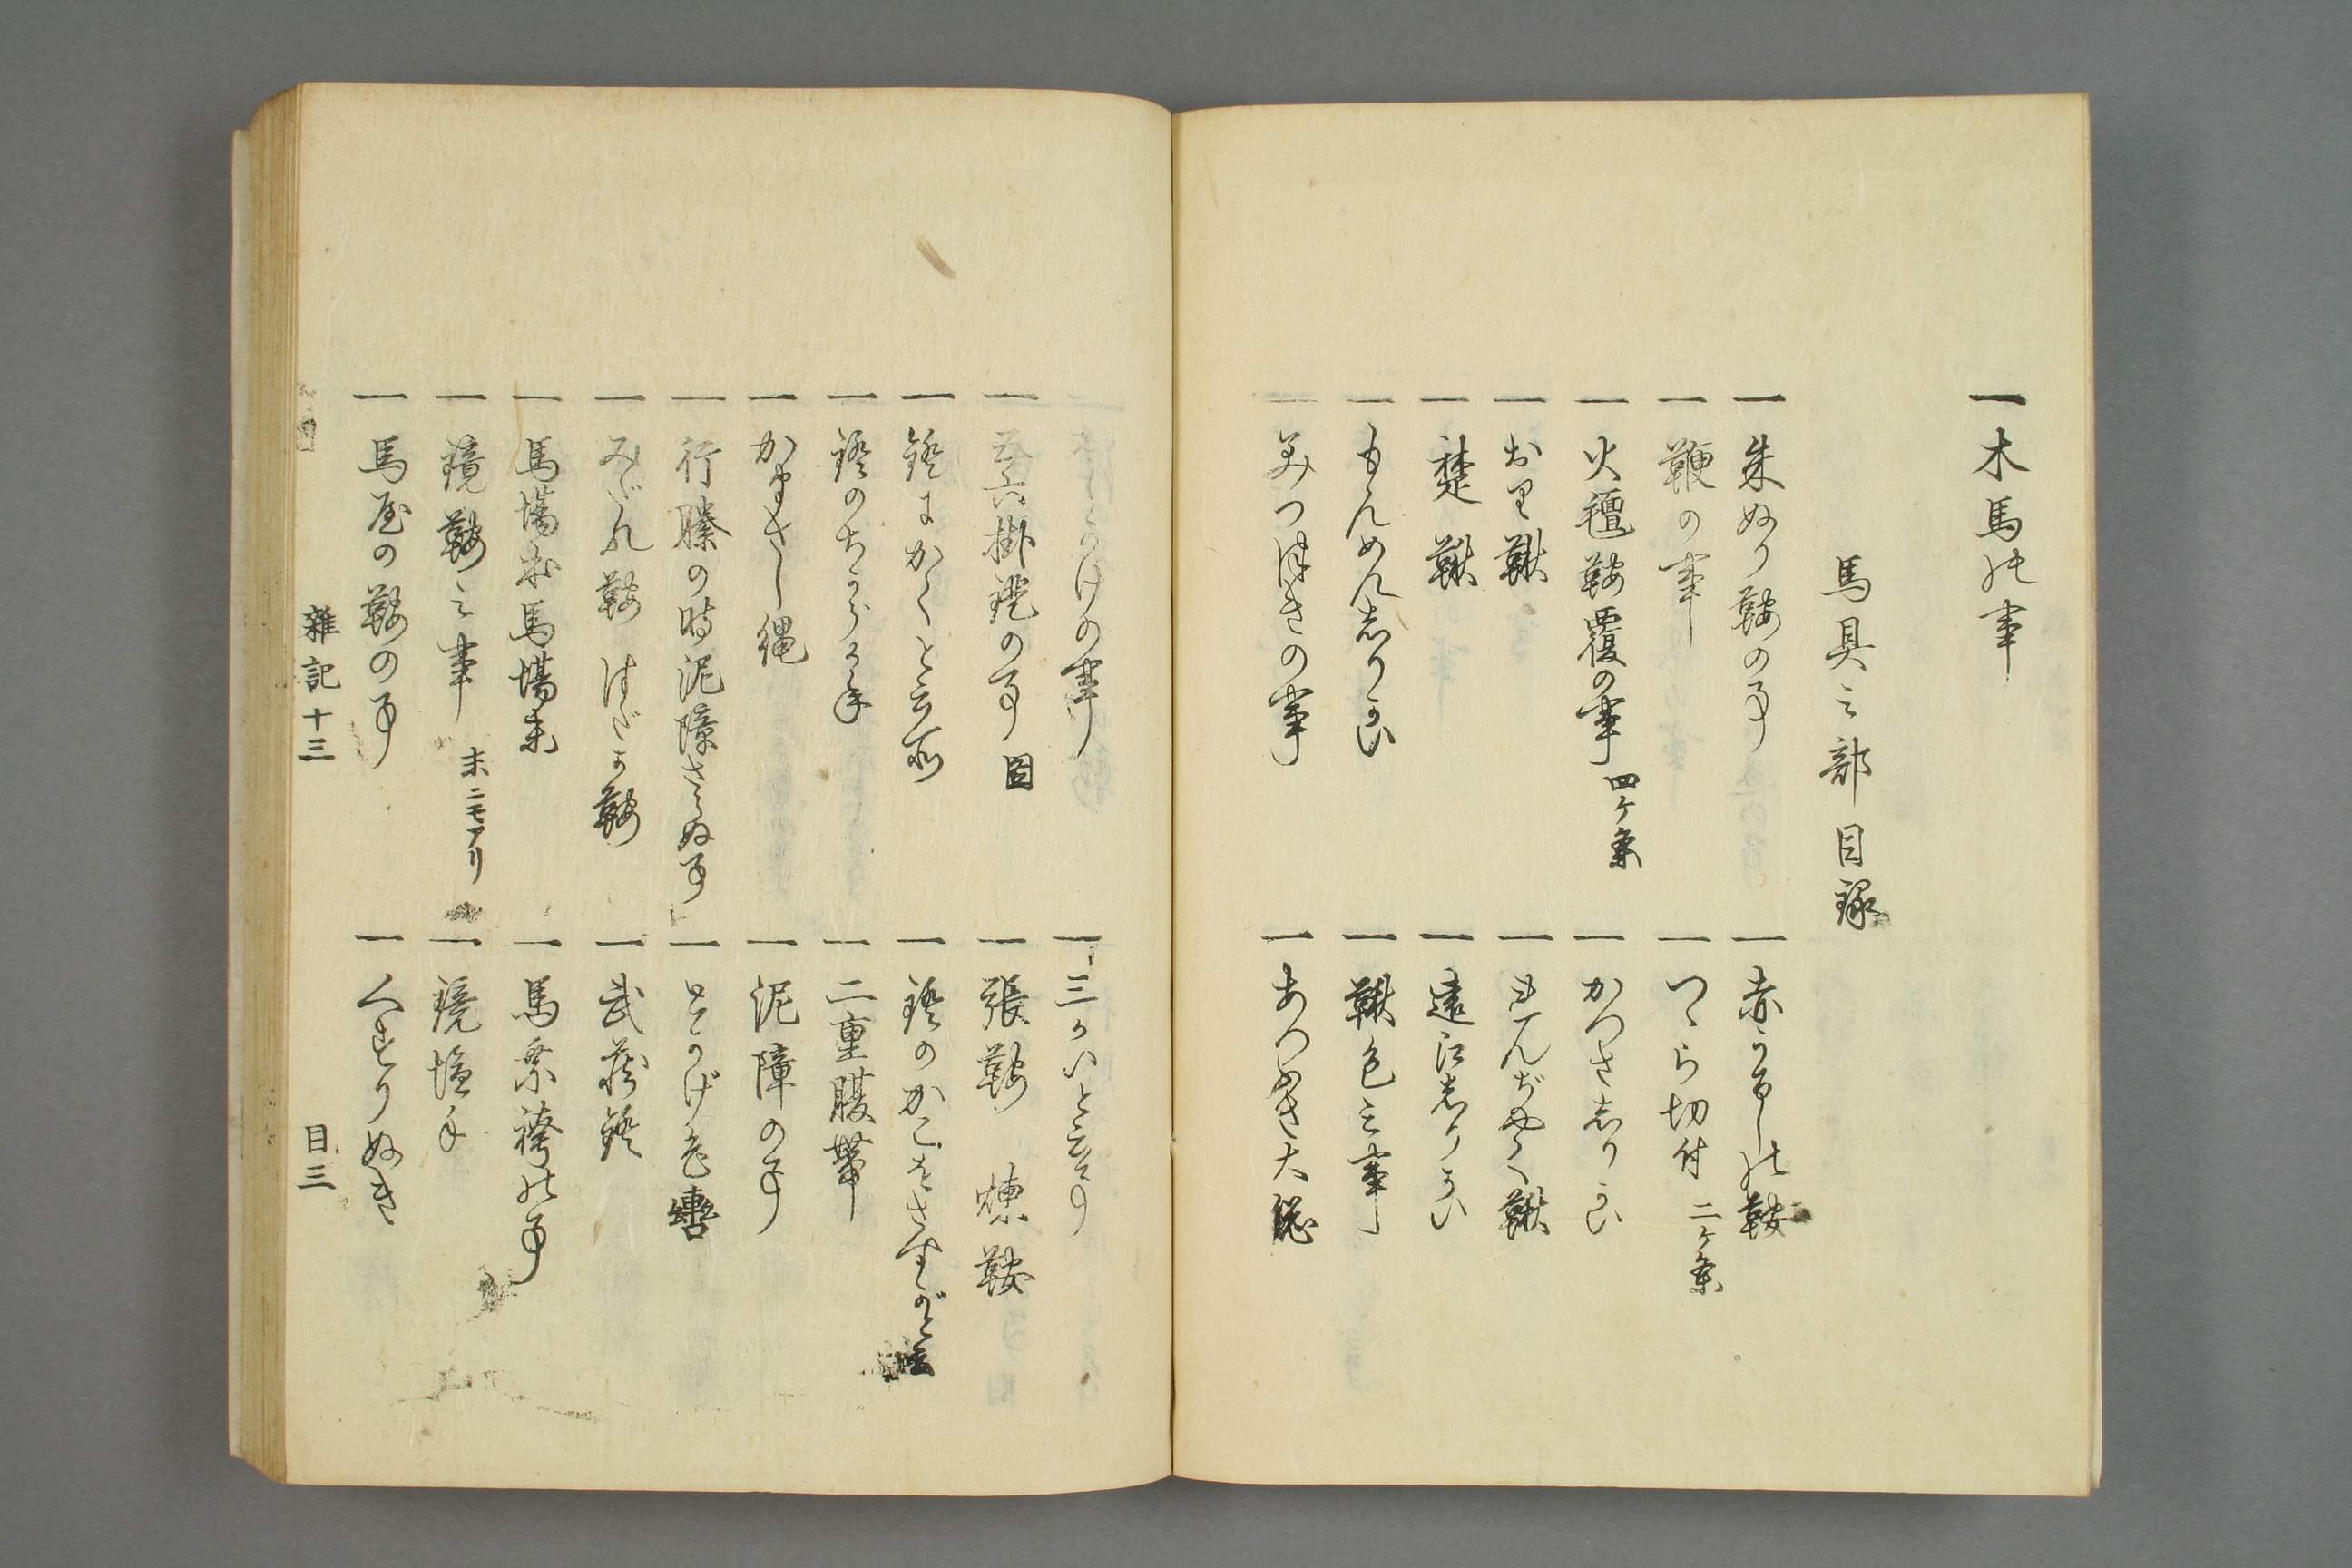 一 木馬の事
馬具之部目録
一 朱ぬり鞍の事
一 赤うるしの鞍
一 鞭の事
一 つゝら切付 二ケ条
一 火氈鞍覆の事 四ケ条
一 かつさしりかい
一 おり鞦
一 れんぢやく鞦
一 楚鞦
一 遠江しりかい
一 もんめんしりかい
一 鞦色之事
一 みつぼきの事
一 あつぶさ大総
かけの事
一 三かいと云事
一 五六掛鐙の事 図
一 張鞍 煉鞍
一 鐙にかくと云所
一 鐙のかこをさすがと云
一 鐙のちからかわ
一 二重腹帯
一 かなさし縄
一 泥障の事
一 行縢の時泥障さゝぬ事
一 とかげ色轡
一 みだれ鞍 はだか鞍
一 武蔵鐙
一 馬場本馬場末
一 馬乗袴の事
一 鏡鞍之事 末ニモアリ
一 鏡塩手
一 馬屋の鞍の事
一 人すりぬき
雑記十三 目三